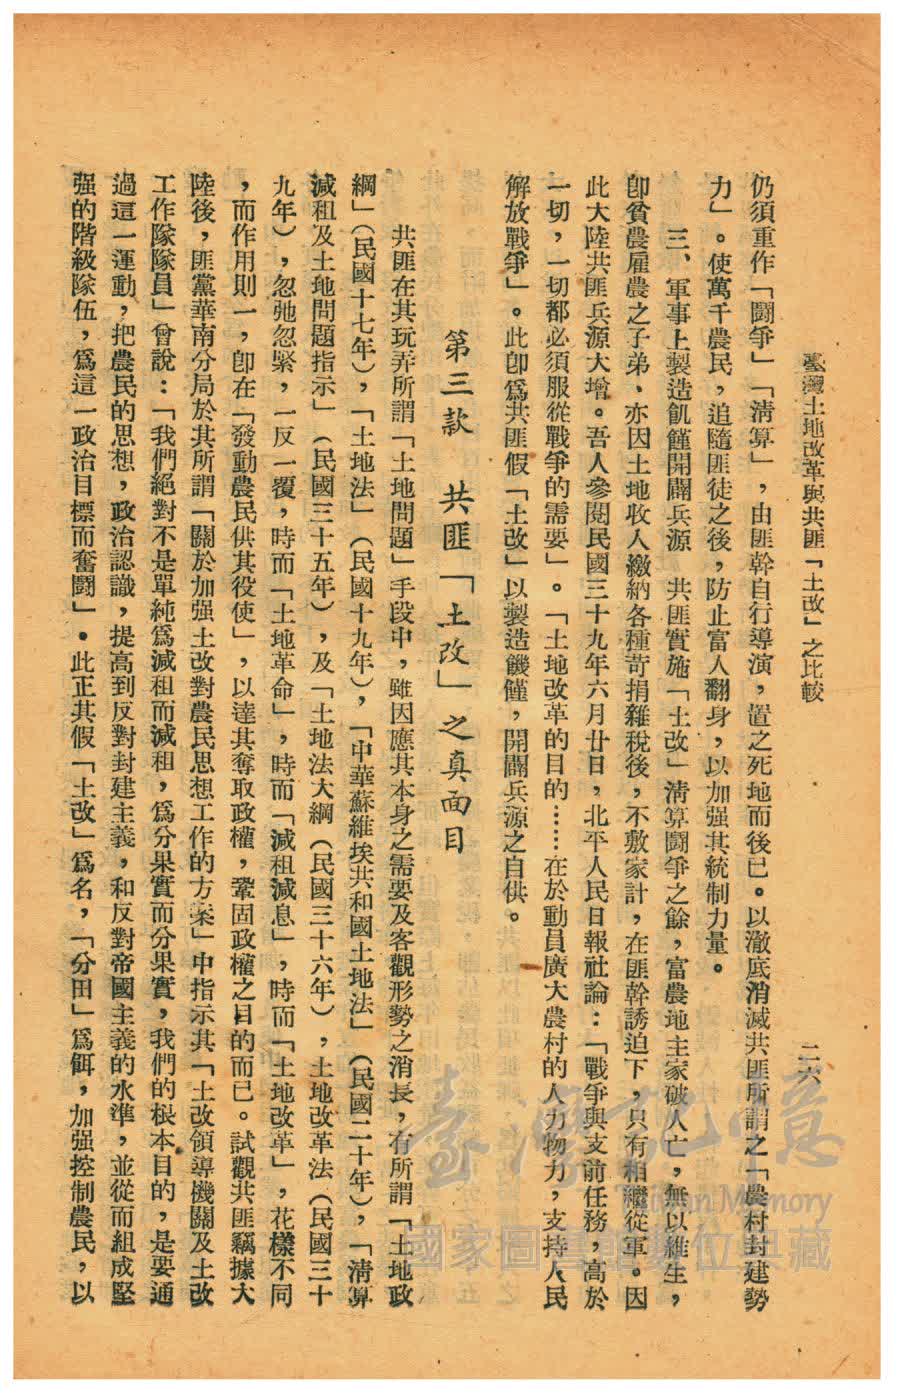 臺灣土地改革與共匪「土改」之比較
二六
仍須重作「鬪爭」「淸算」，由匪幹自行導演，置之死地而後已。以澈底消滅共匪所謂之「農村封建勢
力」。使萬千農民，追隨匪徒之後，防止富人翻身，以加强其統制力量。
三、軍事上製造飢饉開闢兵源　共匪實施「土改」淸算鬪爭之餘，富農地主家破人亡，無以維生，
卽貧農雇農之子弟、亦因土地收入繳納各種苛捐雜稅後，不敷家計，在匪幹誘迫下，只有相繼從軍。因
此大陸共匪兵源大增。吾人參閱民國三十九年六月廿日，北平人民日報社論：「戰爭與支前任務，高於
一切，一切都必須服從戰爭的需要」。「土地改革的目的……在於動員廣大農村的人力物力，支持人民
解放戰爭」。此卽爲共匪假「土改」以製造饑饉，開闢兵源之自供。
第三款　共匪「土改」之真面目
共匪在其玩弄所謂「土地問題」手段中，雖因應其本身之需要及客觀形勢之消長，有所謂「土地政
綱」（民國十七年），「土地法」（民國十九年），「中華蘇維埃共和國土地法」（民國二十年），「淸算
減租及土地問題指示」（民國三十五年），及「土地法大綱（民國三十六年），土地改革法（民國三十
九年），忽弛忽緊，一反一覆，時而「土地革命」，時而「減租減息」，時而「土地改革」，花樣不同
，而作用則一，卽在「發動農民供其役使」，以達其奪取政權，鞏固政權之目的而已。試觀共匪竊據大
陸後，匪黨華南分局於其所謂「關於加强土改對農民思想工作的方案」中指示其「土改領導機關及土改
工作隊隊員」曾說：「我們絕對不是單純爲減租而減租，爲分果實而分果實，我們的根本目的，是要通
過這一運動，把農民的思想，政治認識，提高到反對封建主義，和反對帝國主義的水準，並從而組成堅
强的階級隊伍，爲這一政治目標而奮鬪」。此正其假「土改」爲名，「分田」爲餌，加强控制農民，以
臺灣記憶
Taiwan Memory
國家圖書館數位典藏